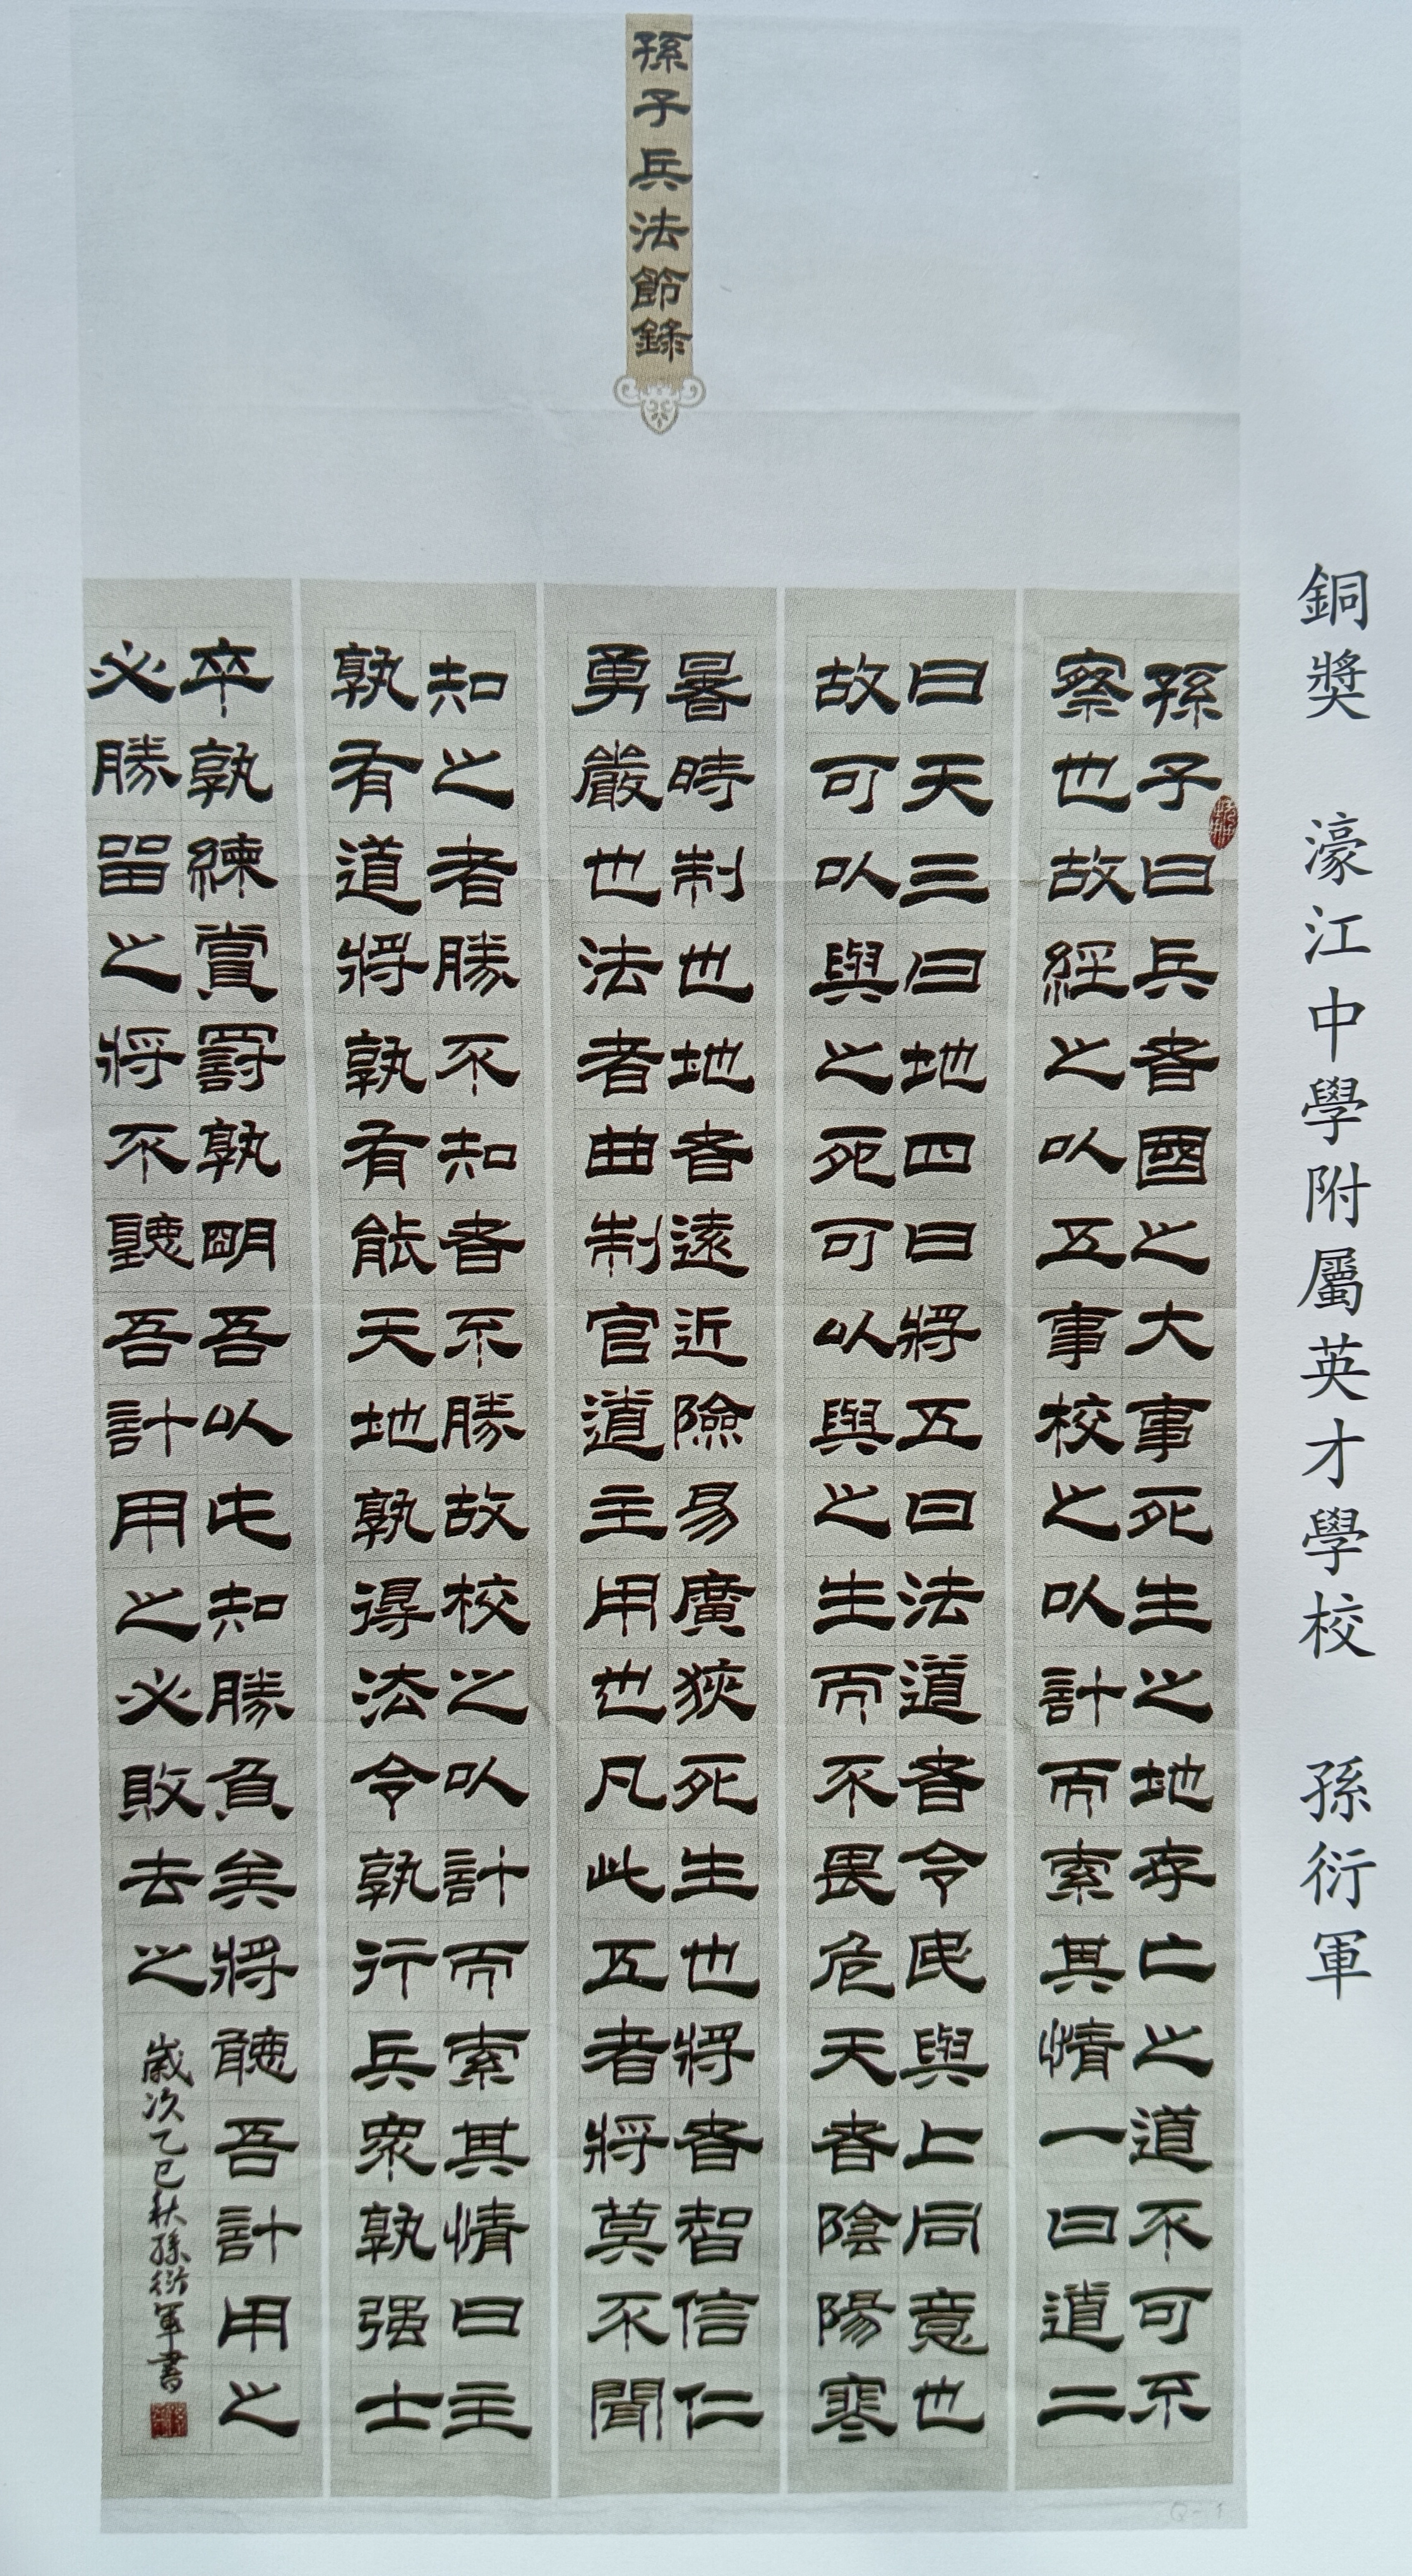 孫子兵法節錄
銅獎 濠江中學附屬英才學校 孫衍軍
孫子曰兵者國之大事死生之地存亡之道不可不
察也故經之以五事校之以計而索其情一曰道二
曰天三曰地四曰將五曰法道者令民與上同意也
故可以與之死可以與之生而不畏危天者陰陽寒
暑時制也地者遠近險易廣狹死生也將者智信仁
勇嚴也法者曲制官道主用也凡此五者將莫不聞
知之者勝不知者不勝故校之以計而索其情曰主
孰有道將孰有能天地孰得法令孰行兵眾孰强士
卒孰練賞罰孰明吾以此知勝負矣將聽吾計用之
必勝留之將不聽吾計用之必敗去之
歲次乙巳秋孫衍軍書